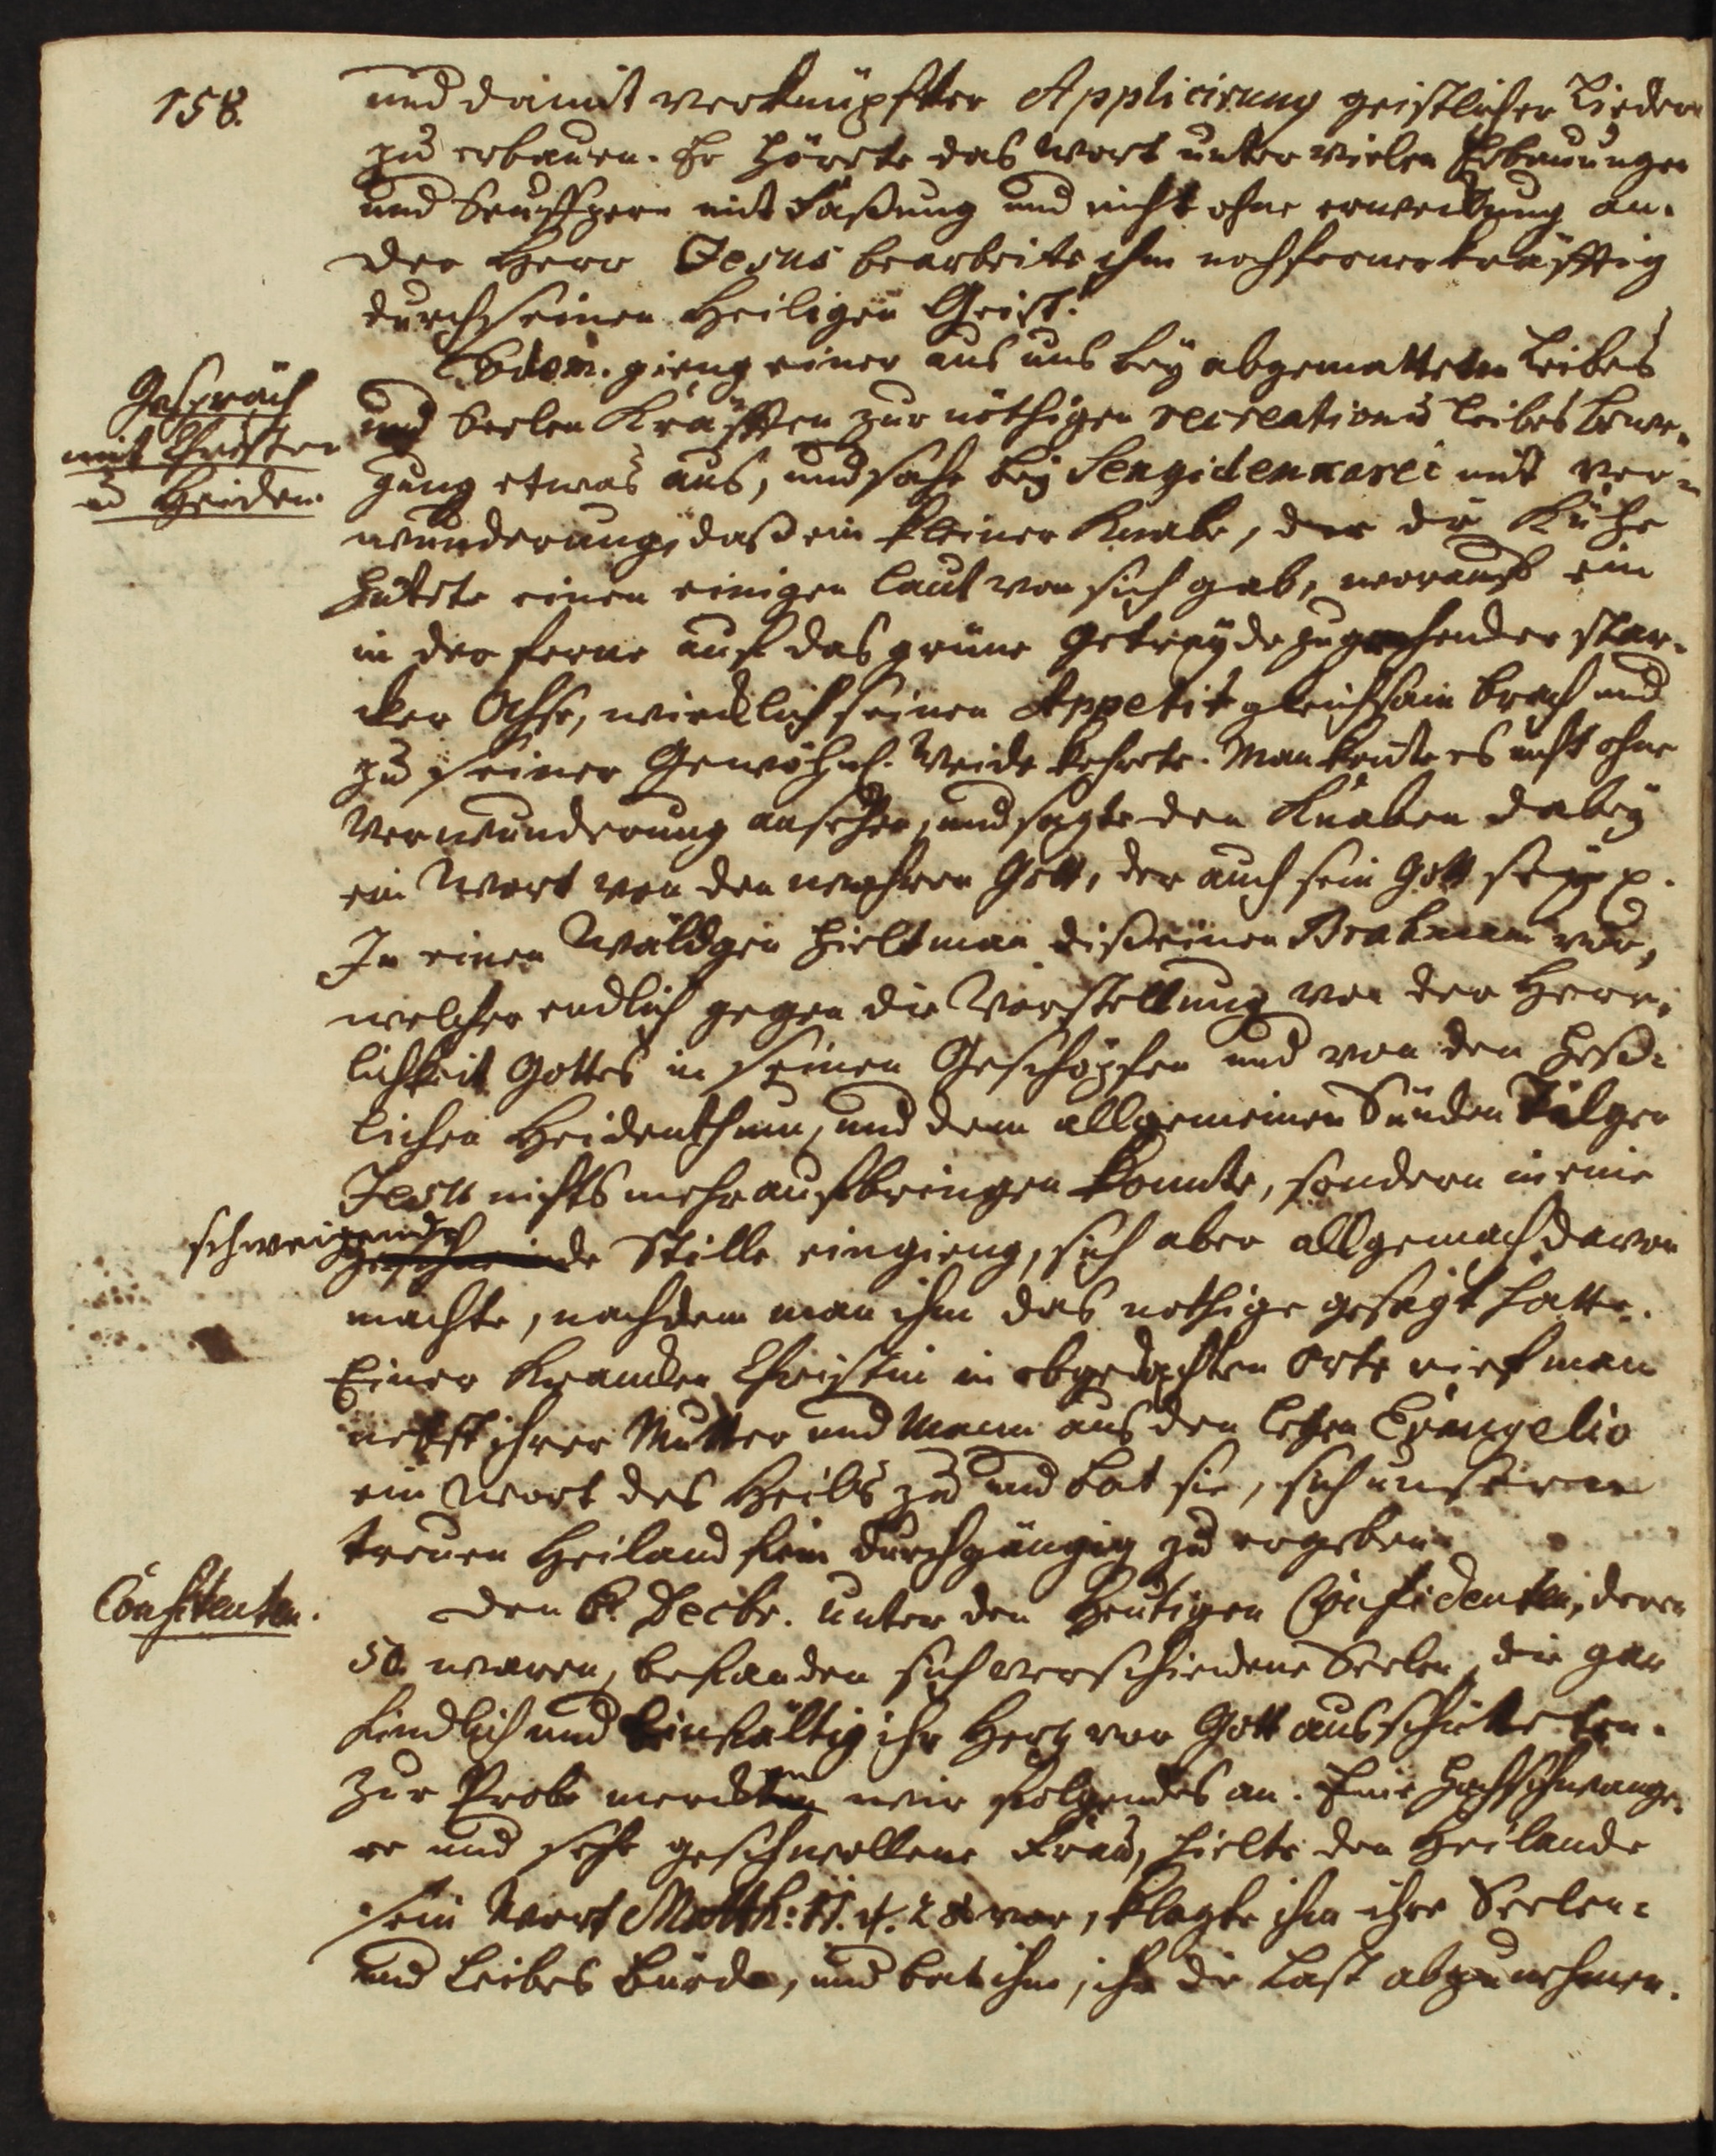 158.
und damit verknüpfter Applicirung geistlicher Lieder
zu erbauen. Er hörete das Wort unter vielen
und Seuffzern mit Faßung und nicht ohne erweckung an.
der Herr Jesus bearbeite ihn noch ferner kräfftig
durch seinen Heiligen Geist!
Eodem. gieng einer aus uns bey abgematteten Leibes
Gespräch
mit Christen
u Heiden.
und Seelen Kräfften zur nöthigen recreation u Leibes bewe-
gung etwas aus, und sahe bey Sengidennarei mit ver-
wunderung, daß ein kleiner Knabe, der die Kühe
hütete einen einigen laut von sich gab, worauf ein
in der ferne auf das grüne Getreyde zugehender star-
cker Ochse, wircklich seinen Appetit gleichsam brach und
zu seiner Gewöhnl. Weide kehrete. Man konte es nicht ohne
Verwunderung ansehen, und sagte den Knaben dabey
ein Wort von den wahren Gott, der auch sein Gott sey p.
In einen Wäldgen hielt man diß einen Brahman vor,
welcher endlich gegen die Vorstellung von der Herr-
lichkeit Gottes in seinen Geschöpfen und von den heß-
lichen Heidenthum, und dem allgemeinen Sünden Tilger
Jesu nichts mehr aufbringen konnte, sondern in eine
schweigende Stille eingieng, sich aber allgemach davon
machte, nachdem man ihm das nothige gesagt hatte.
Einer krancken Christin in obgedachten Orte rief man
nebst ihrer Mutter und Mann aus den letzten Evangelio
ein Wort des Heils zu und bat sie, sich unserm
treuen Heiland fein durchgängig zu ergeben.
Confitenten.
den 6. Decbr. unter den heutigen Confidenten, deren
50. waren, befanden sich verschiedene Seelen, die gar
kindlich und Einfältig ihr Hertz vor Gott ausschütteten.
Zur Probe mercken wir folgendes an. Eine hochschwange-
re und sehr geschwollene Frau, hielte den Heilande
sein Wort Matth: 11. v. 28 vor, klagte ihm ihre Seelen-
und Leibes Bürde, und bat ihn, ihr die Last abzunehmen.